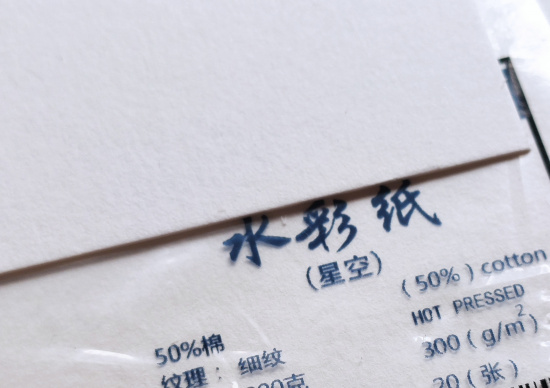 水彩纸
(星空)
(50%) cotton
HOT PRESSED
50%棉
300(g/m²)
纹理: 细纹
20(张)